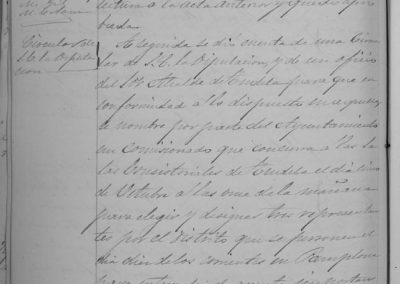 lectura a la acta anterior y quedó apro
bada.
Circular de
S.E. la Diputa
cion
A seguida se dió cuenta de una Circu
lar de S.E. la Diputacion, y de un oficio
del Sr. Alcalde de Tudela para que en
conformidad a lo dispuesto en aquella
se nombre por parte del Ayuntamiento
un Comisionado que concurra a las
Casas Consistoriales de Tudela el dia cinco
de Octubre a las once de la mañana
para elegir y designar tres representan
tes por el distrito que se personen el
dia diez de los corrientes en Pamplona
para